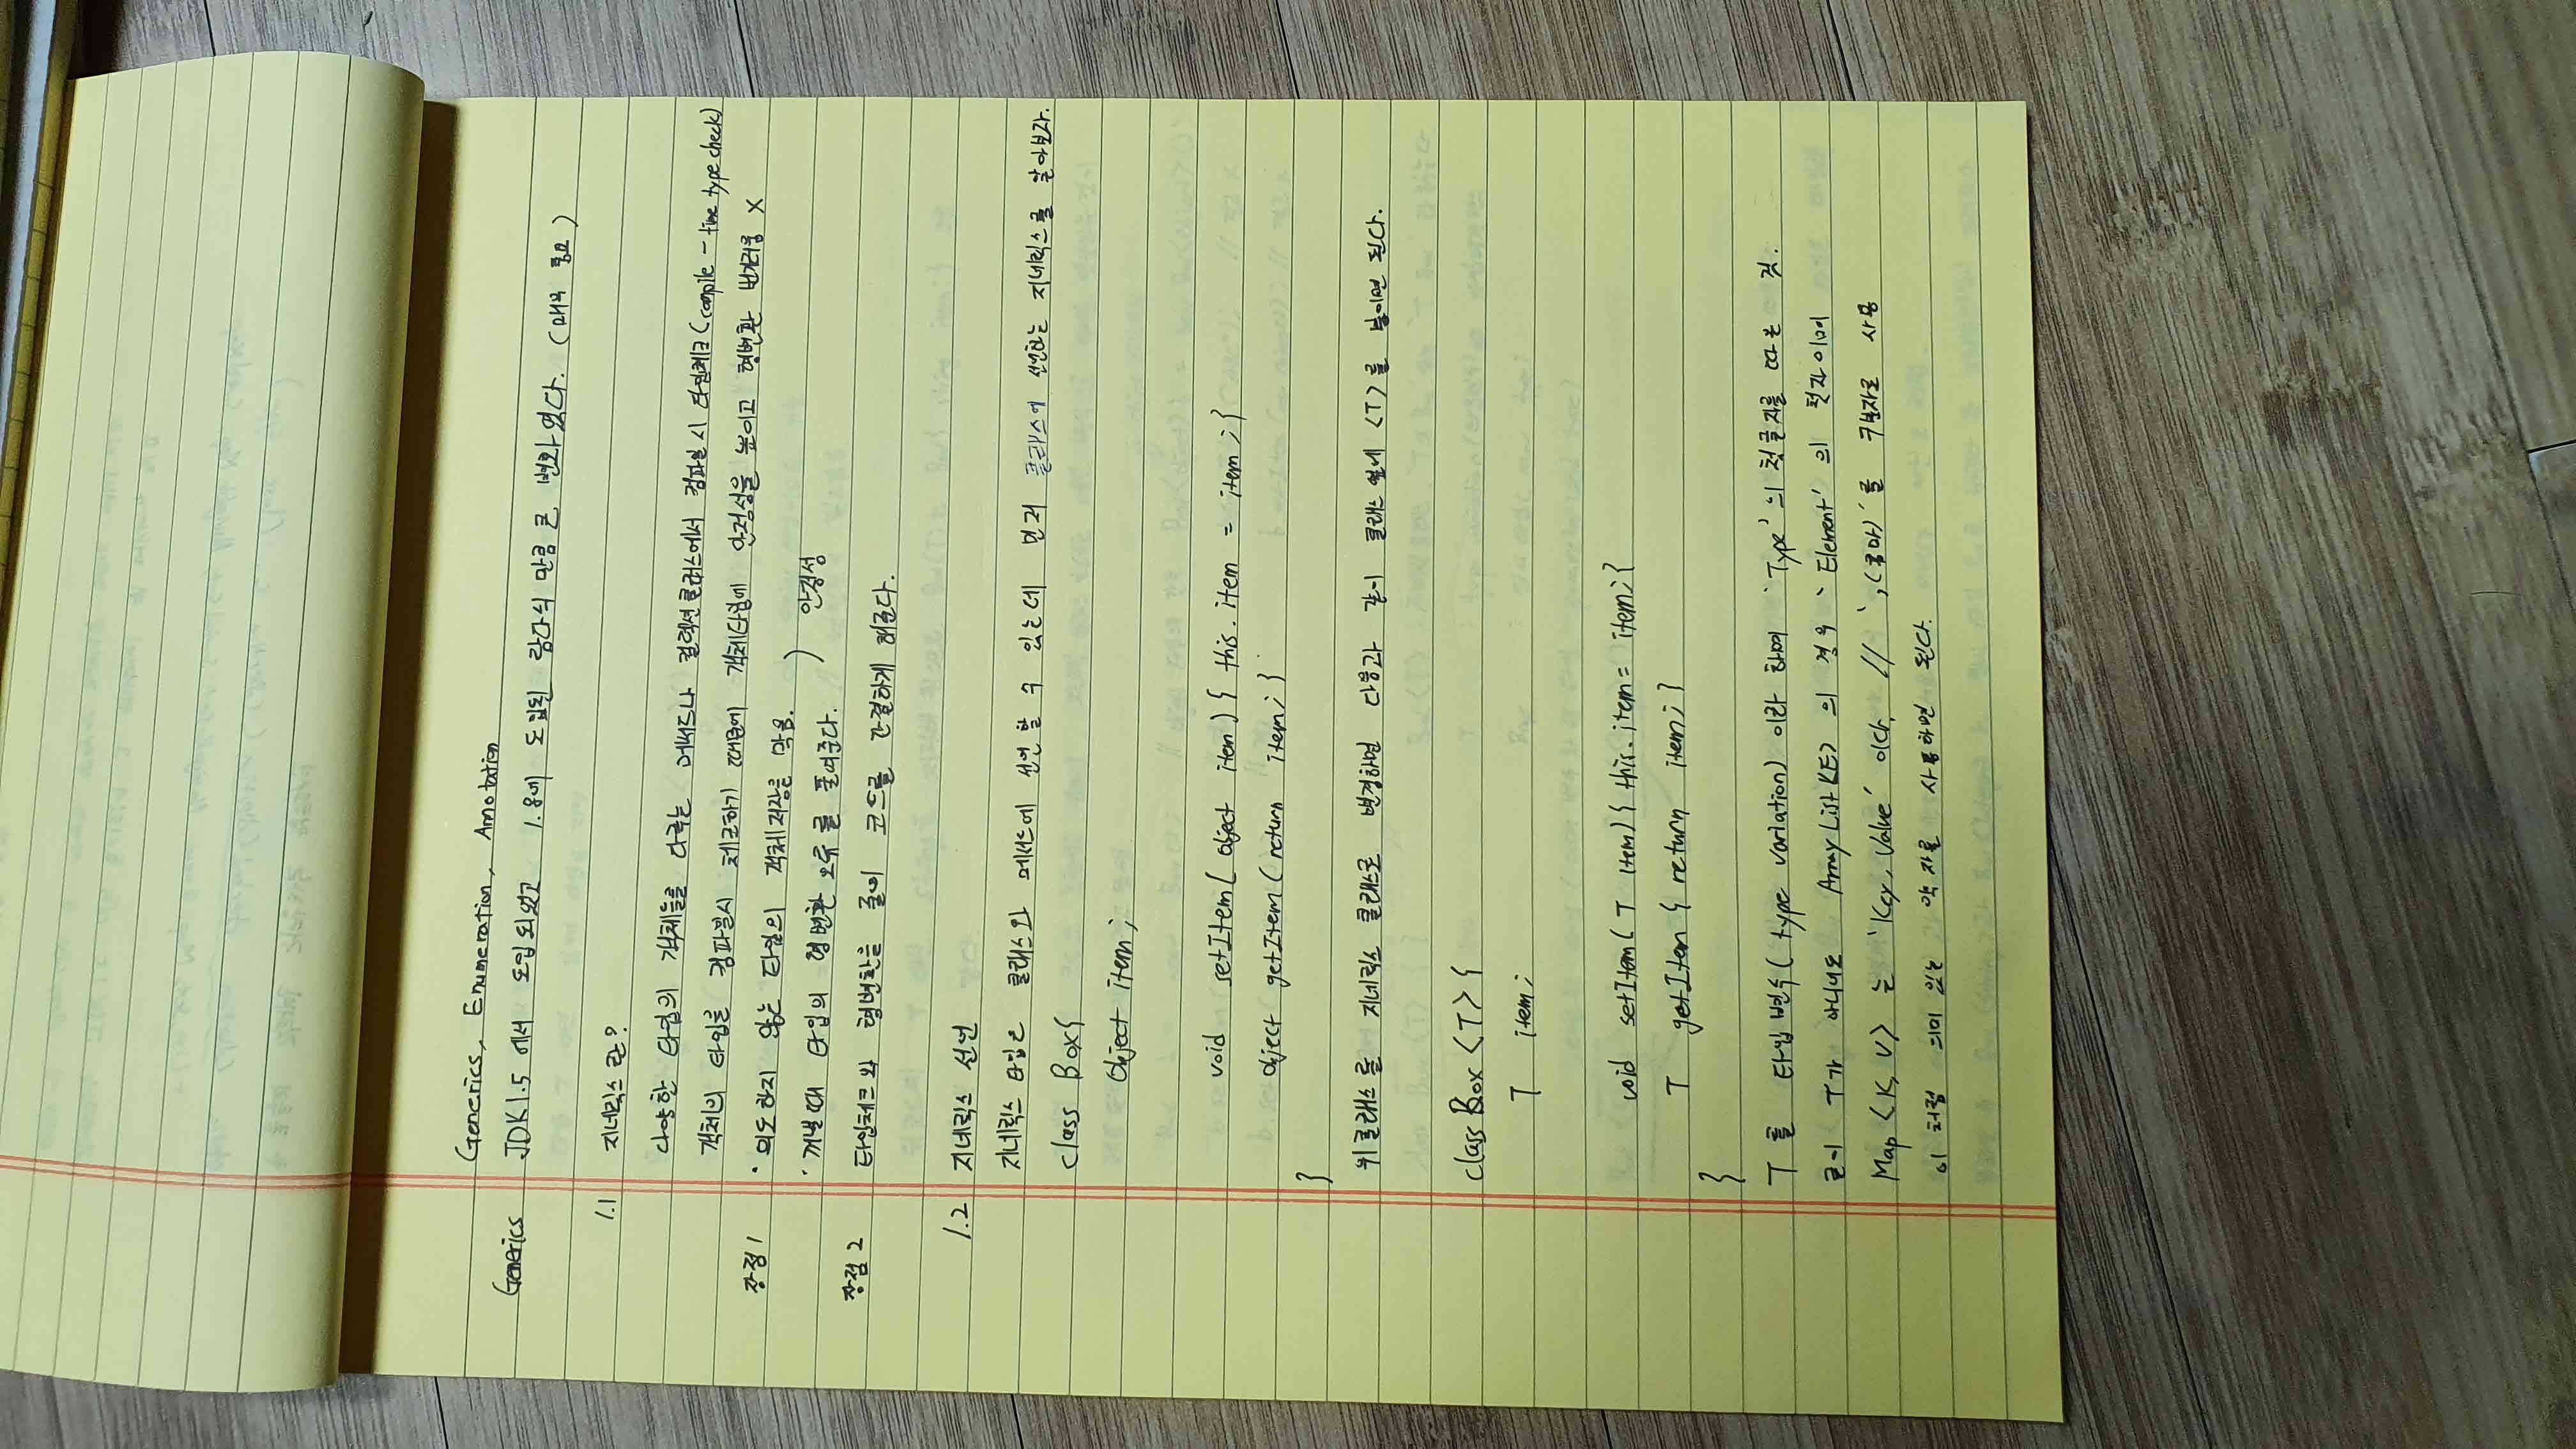 Generics, Enumeration, Annotation
Generics JDK1.5 에서 도입되었고 1.8에 도입된 람다식 만큼 큰 변화였다. (매우 중요)
1.1 지네릭스란?
다양한 타입의 객체들을 다루는 메서드나 컬렉션클래스에서 컴파일 시 타입체크(compile - time type check)
객체의 타입을 컴파일시 체크하기 때문에 객체타입에 안정성을 높이고 형변환 번거러움 X
장점1 · 의도하지 않는 타입의 객체저장을 막음.
· 꺼낼때 타입의 형변환 오류를 줄여준다. ) 안정성
장점2 타입체크와 형변환을 줄여 코드를 간결하게 해준다.
1.2 지네릭스 선언
지네릭스 타입은 클래스와 메서드에 선언할 수 있는데 먼저 클래스에 선언하는 지네릭스를 알아보자.
class Box{
Object item;
void setItem( object item) { this.item = item; }
object getItem ( return item; }
}
위클래스를 지네릭스 클래스로 변경하면 다음과 같이 클래스 옆에 <T>를 붙이면 된다.
class Box <T> {
T item;
void setItem( T item) { this.item = item; }
T getItem { return item; }
}
T 를 타입변수( type variation) 이라 하며 'Type'의 첫글자를 따온 것.
T가 아니너도 ArrayList<E> 의 경우 'Element' 의 첫자이며
Map <K, V> 는 'Key, Value' 이다. // ',(콤마)'를 구분자로 사용
이처럼 의미 있는 약자를 사용하면 된다.